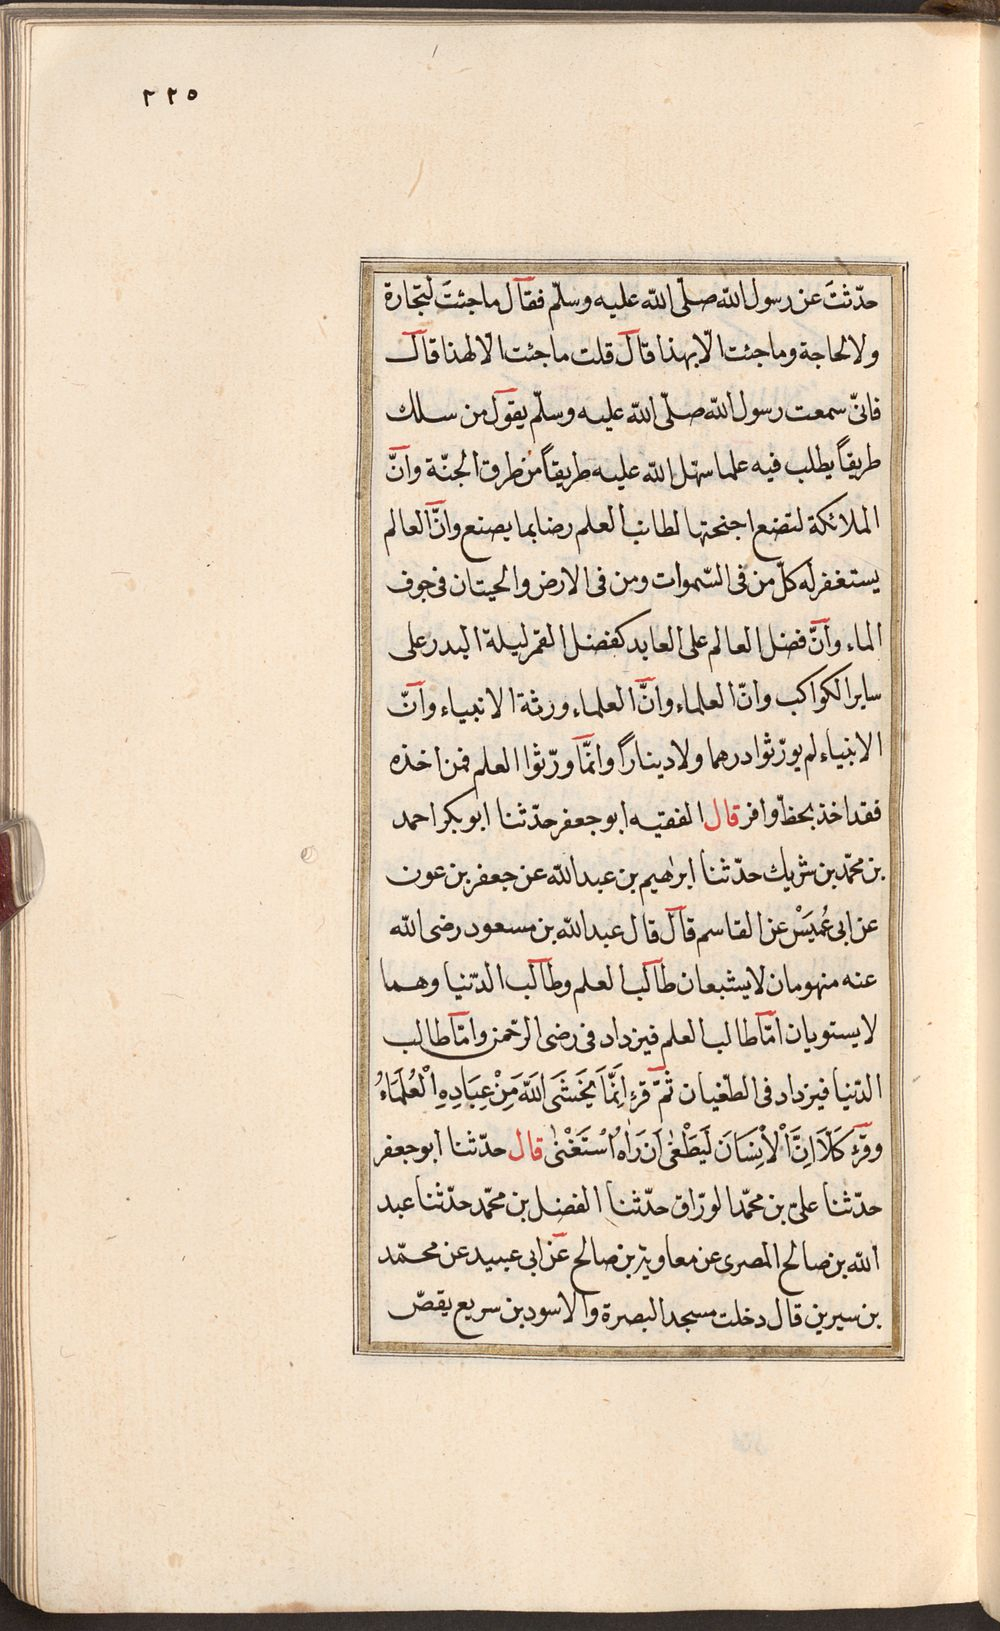 ٢٢٥
حدّثتَ عن رسول الله صلّى الله عليه وسلّم فقال ما جئتَ لتجارة
ولا لحاجة وما جئت الّا بهذا قال قلت ما جئت الّا لهذا قال
فانّى سمعت رسول الله صلّى الله عليه وسلّم يقول من سلك
طريقاً يطلب فيه علما سهّل الله عليه طريقاً من طرق الجنّة وانّ
الملائكة لتضع اجنحتها لطالب العلم رضا بما يصنع وانّ العالم
يستغفر له كلّ من فى السّموات ومن فى الارض والحيتان فى جوف
الماء وانّ فضل العالم على العابد كفضل القمر ليلة البدر على
ساير الكواكب وانّ العلماء وانّ العلماء ورثة الانبياء وانّ
الانبياء لم يورّثوا درهما ولا ديناراً وانّما ورّثوا العلم فمن اخذه
فقد اخذ بحظّ وافر قال الفقيه ابو جعفر حدّثنا ابو بكر احمد
بن محمّد بن شريك حدّثنا ابرٰهيم بن عبد الله عن جعفر بن عون
عن ابى عُميَسْ عن القاسم قال قال عبد الله بن مسعود رضى الله
عنه منهومان لا يشبعان طالب العلم وطالب الدّنيا وهما
لا يستويان امّا طالب العلم فيزداد فى رضى الرّحمن وامّا طالب
الدّنيا فيزداد فى الطّغيان ثمّ قرء اِنَّمَا يَخْشَى اللّٰهَ مِنْ عِبَادِهِ الْعُلَمَاءُ
وقرء كَلَّا اِنَّ الْاِنْسَانَ لَيَطْغٰى اَنْ رَاٰهُ اسْتَغْنٰى قال حدّثنا ابو جعفر
حدّثنا علىّ بن محمّد الورّاق حدّثنا الفضل بن محمّد حدّثنا عبد
الله بن صالح المصرى عن معاوية بن صالح عن ابى عبيد عن محمّد
بن سيرين قال دخلت مسجد البصرة والاسود بن سريع يقصّ